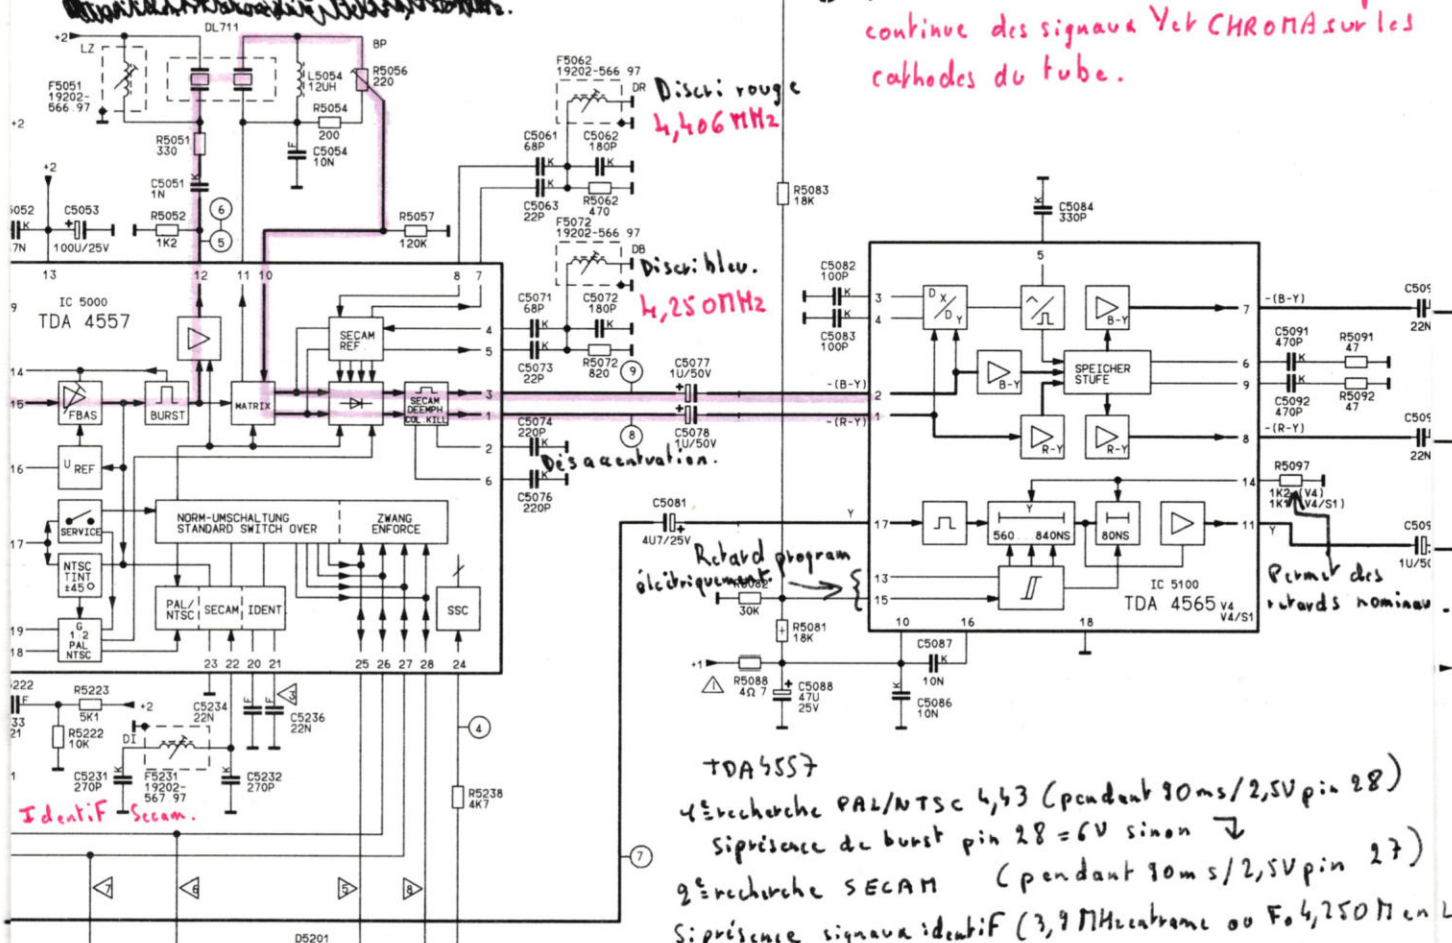 continue des signaux Y et CHROMA sur les
cathodes du tube.
DL711
+2
LZ
BP
F5051
19202-
566 97
L5054
12UH
R5056
220
R5054
200
C5054
10N
F
R5051
330
C5051
1N
K
+2
+2
5052
K
7N
C5053
100U/25V
R5052
1K2
6
5
R5057
120K
F5062
19202-566 97
DR
Discri rouge
4,406 MHz
C5061
68P
C5062
180P
C5063
22P
R5062
470
F5072
19202-566 97
DB
Discri bleu.
4,250 MHz
C5071
68P
C5072
180P
C5073
22P
R5072
820
R5083
18K
C5084
330P
C5082
100P
C5083
100P
13
12
11
10
8
7
IC 5000
TDA 4557
9
14
15
16
17
19
18
FBAS
BURST
MATRIX
SECAM
REF
SECAM
DEEMPH
COL KILL
U REF
SERVICE
NTSC
TINT
±45°
G
1 2
PAL
NTSC
NORM-UMSCHALTUNG
STANDARD SWITCH OVER
ZWANG
ENFORCE
PAL/
NTSC
SECAM
IDENT
SSC
4
5
3
1
2
6
23
22
20
21
25
26
27
28
24
9
8
C5077
1U/50V
C5078
1U/50V
-(B-Y)
-(R-Y)
C5074
220P
Désaccentuation.
C5076
220P
C5081
4U7/25V
Y
Retard program
électriquement.
R5082
30K
R5081
18K
+1
R5088
4Ω 7
C5088
47U
25V
C5087
10N
C5086
10N
5
3
4
2
1
17
13
15
10
16
18
7
6
9
8
14
11
D X
D Y
B-Y
B-Y
R-Y
R-Y
SPEICHER
STUFE
Y
560...840NS
80NS
IC 5100
TDA 4565
V4
V4/S1
-(B-Y)
C509
22N
C5091
470P
R5091
47
C5092
470P
R5092
47
-(R-Y)
C509
22N
R5097
1K2 (V4)
(V4/S1)
Y
C509
1U/50
Permet des
retards nominaux.
5222
F
33
21
R5223
5K1
+2
R5222
10K
DI
C5231
270P
F5231
19202-
567 97
C5232
270P
C5234
22N
C5236
22N
3
4
R5238
4K7
Identif Secam.
7
6
5
8
7
D5201
TDA4557
1° recherche PAL/NTSC 4,43 (pendant 80ms/2,5V pin 28)
Si présence de burst pin 28 = 6V sinon
2° recherche SECAM (pendant 80ms/2,5V pin 27)
Si présence signaux identif (3,9 MHz en trame ou Fo 4,250 M en L